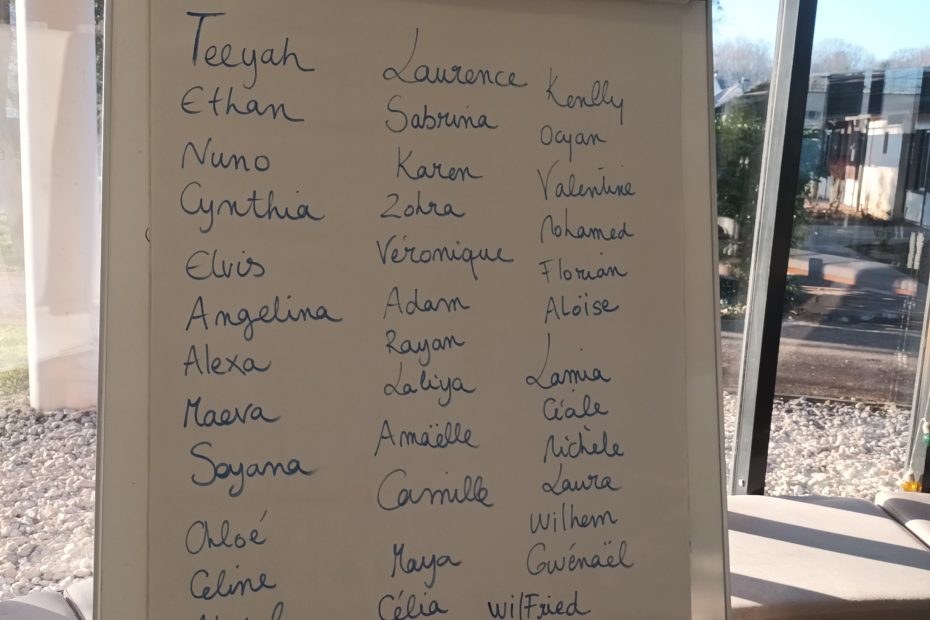 Teeyah
Ethan
Nuno
Cynthia
Elvis
Angelina
Alexa
Maeva
Soyana
Chloé
Celine
Laurence
Sabrina
Karen
Zohra
Véronique
Adam
Rayan
Laliya
Amaëlle
Camille
Maya
Célia
Kenlly
Ocyan
Valentine
Mohamed
Florian
Aloïse
Lamia
Michèle
Laura
Wilhem
Gwénaël
WilFried